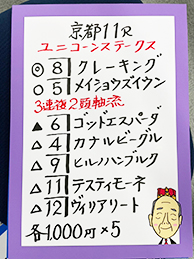 京都11R
ユニコーンステークス
◎ 8 クレーキング
○ 5 メイショウズイウン
3連複2頭軸流
▲ 6 ゴッドエスパーダ
△ 4 カナルビーグル
△ 9 ヒルノハンブルク
△ 11 テスティモーネ
△ 12 ヴィリアリート
各1,000円×5